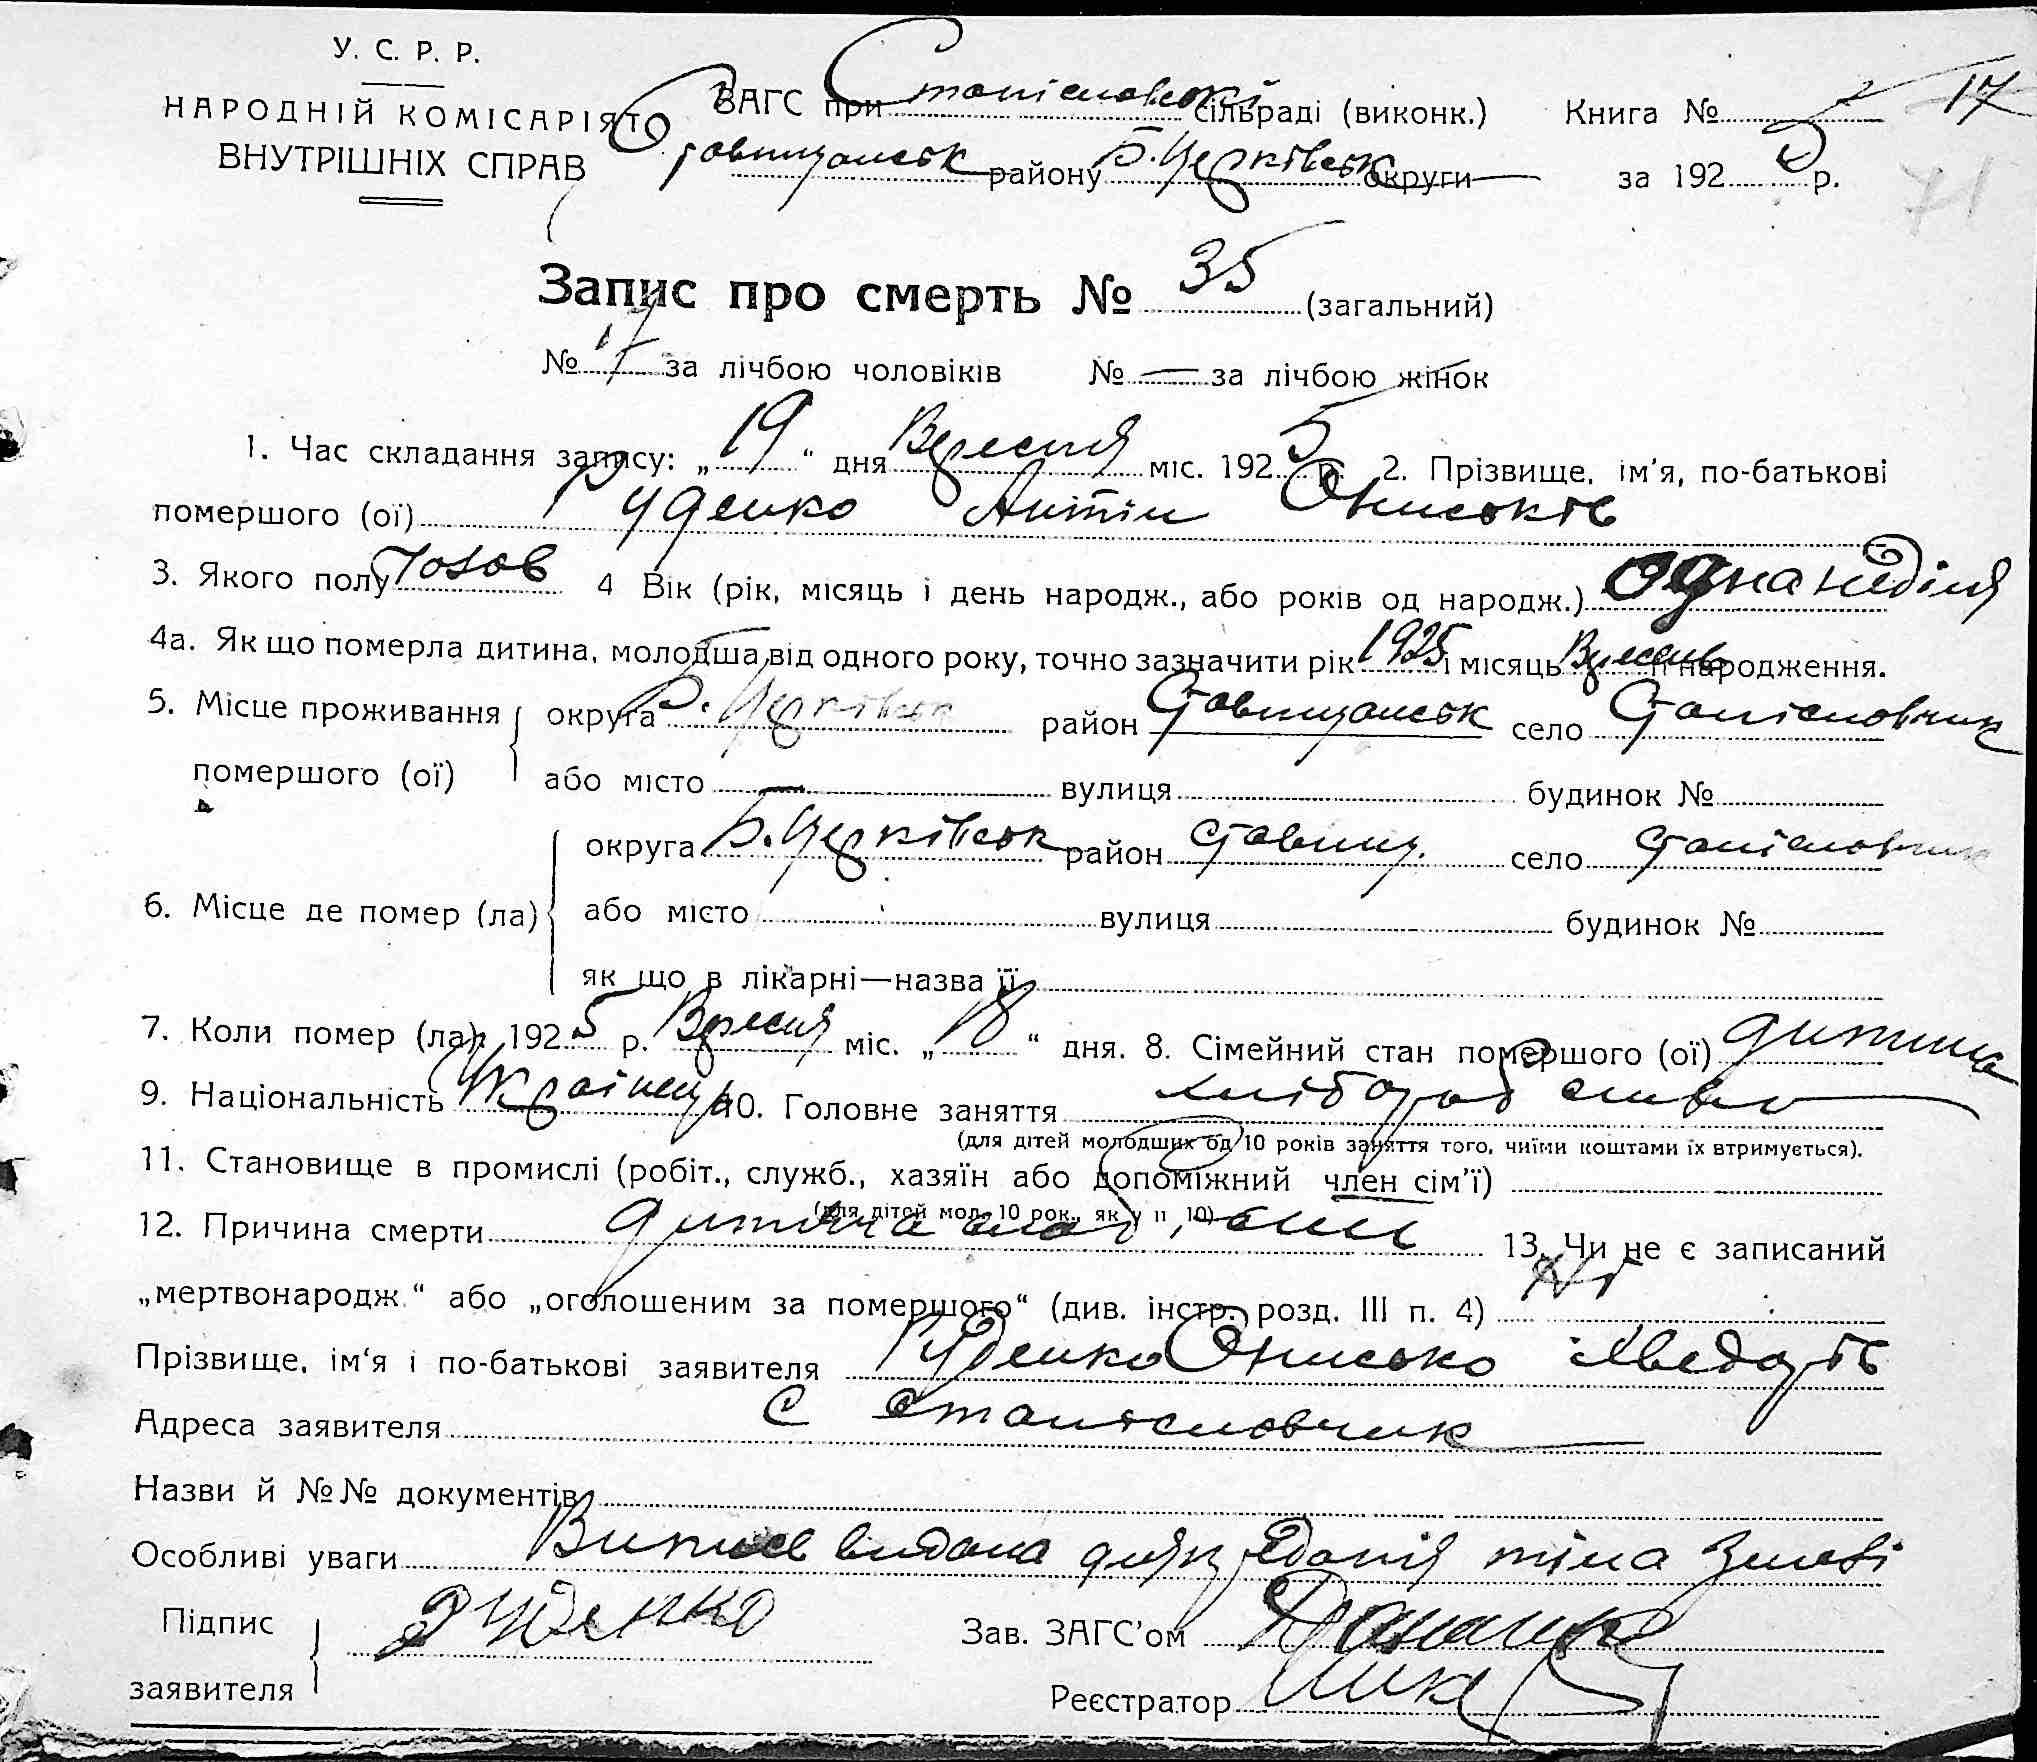 У. С. Р. Р.
НАРОДНІЙ КОМІСАРІЯТ
ВНУТРІШНІХ СПРАВ
ЗАГС при Станіславській сільраді (виконк.) Книга № 17
Ставищанськ району Б. Церківськ округи за 192 5 р.
71
Запис про смерть № 35 (загальний)
№ 17 за лічбою чоловіків № — за лічбою жінок
1. Час складання запису: „ 19 “ дня Вересня міс. 192 5 р. 2. Прізвище, ім'я, по-батькові
помершого (ої) Руденко Антін Ониськів
3. Якого полу Чолов 4 Вік (рік, місяць і день народж., або років од народж.) одна неділя
4а. Як що померла дитина, молодша від одного року, точно зазначити рік 1925 і місяць Вересень її народження.
5. Місце проживання помершого (ої) округа Б. Церківськ район Ставищанськ село Станіславчик
або місто — вулиця будинок №
6. Місце де помер (ла) округа Б. Церківськ район Ставищ. село Станіславчик
або місто вулиця будинок №
як що в лікарні—назва її
7. Коли помер (ла) 192 5 р. Вересня міс. „ 18 “ дня. 8. Сімейний стан помершого (ої) дитина
9. Національність Українець 10. Головне заняття хліборобство
(для дітей молодших од 10 років заняття того, чиїми коштами їх втримується).
11. Становище в промислі (робіт., служб., хазяїн або допоміжний член сім'ї)
(для дітей мол. 10 рок., як у п 10)
12. Причина смерти дитяча 13. Чи не є записаний
„мертвонародж.“ або „оголошеним за помершого“ (див. інстр. розд. III п. 4) Ні
Прізвище, ім'я і по-батькові заявителя Руденко Онисько Хведорів
Адреса заявителя С Станіславчик
Назви й №№ документів
Особливі уваги Випись видана для тіла землі
Підпис заявителя Руденко Зав. ЗАГС'ом
Реєстратор